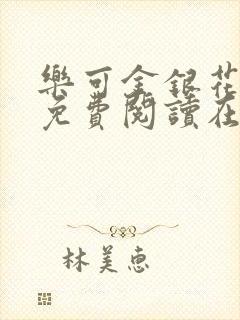 樂可金銀花
免費閱讀在
林美惠